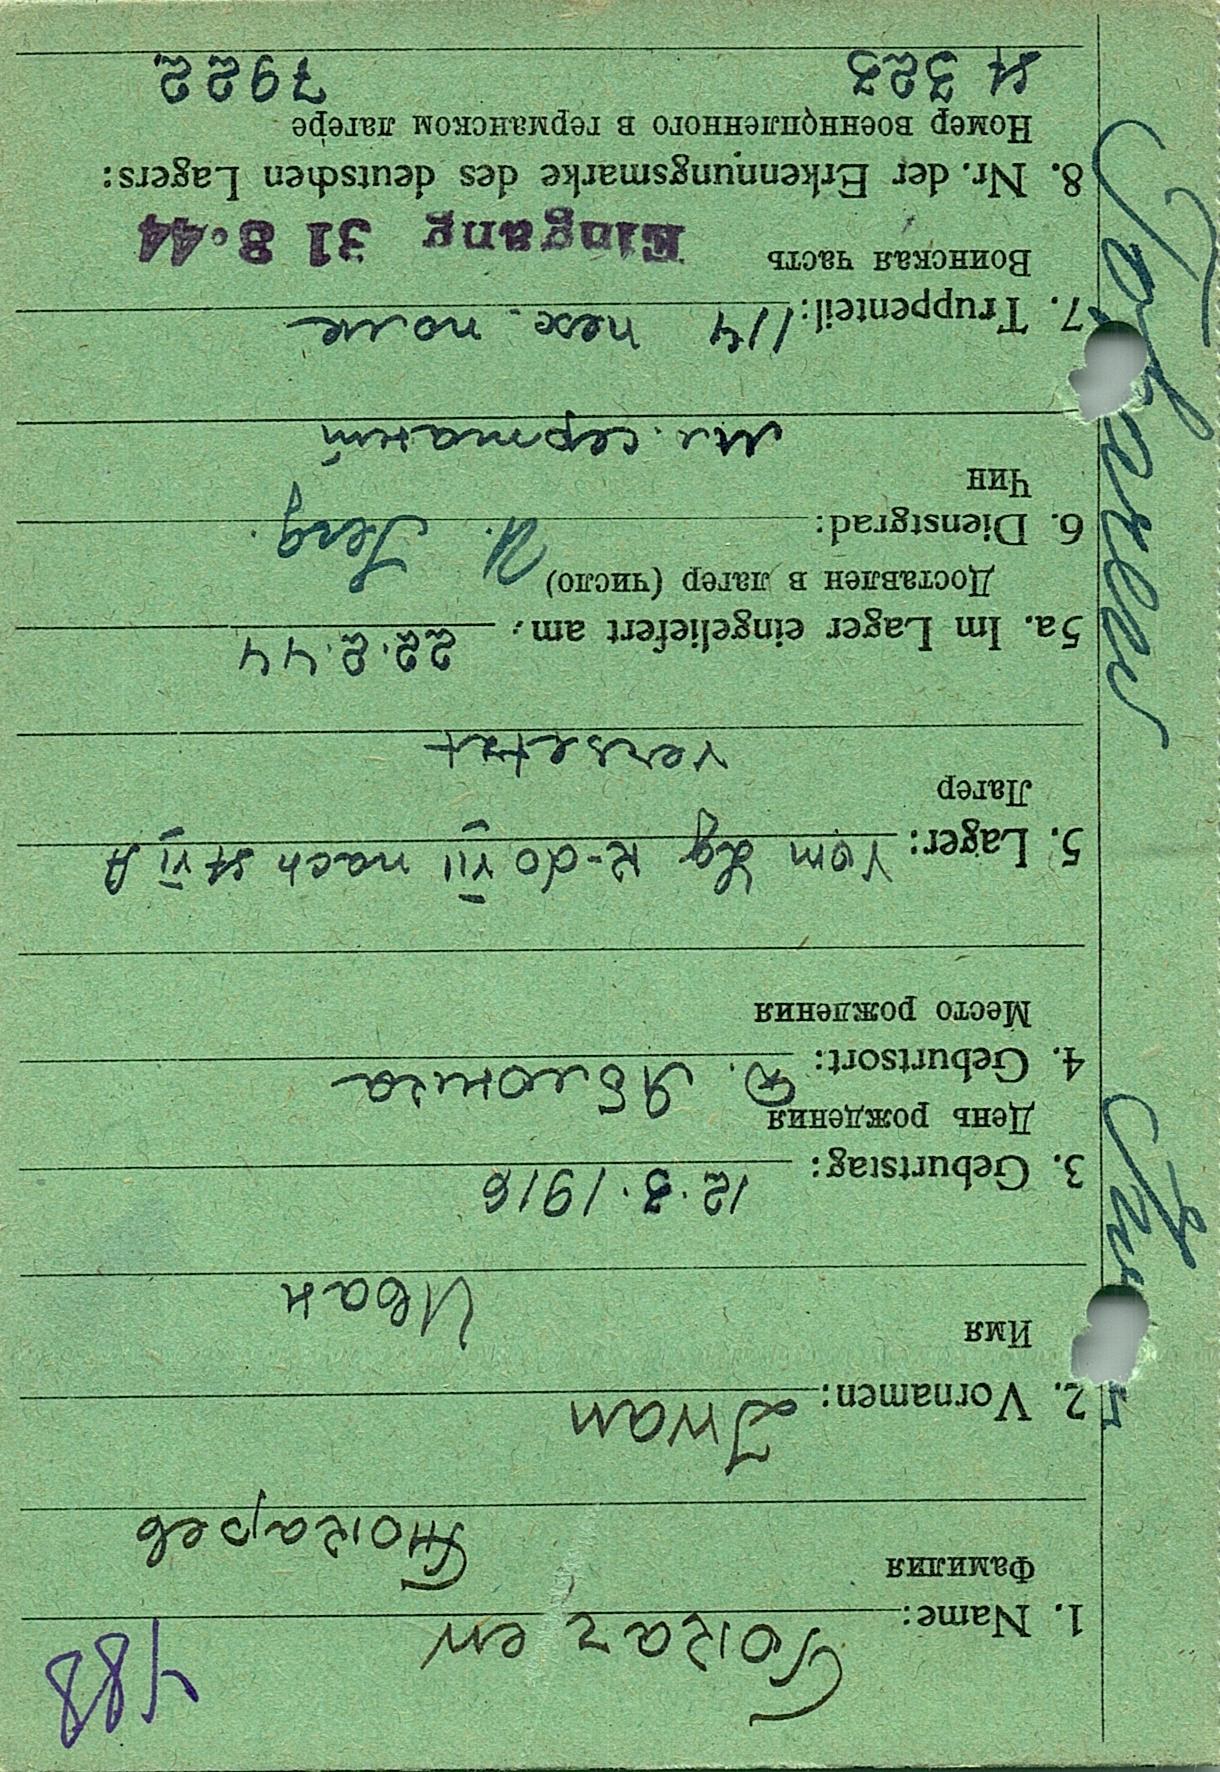 188
1. Name: Tokarew
Фамилия Токарев
2. Vornamen: Iwan
Имя
Иван
3. Geburtstag: 12.3.1916
День рождения
4. Geburtsort: д. Яблонка
Место рождения
5. Lager: Vom Lg K-do VII nach St VI A
Лагер
versetzt
5a. Im Lager eingeliefert am: 22.2.44
Доставлен в лагер (число)
6. Dienstgrad: U. Serg.
Чин
Мл. сержант
7. Truppenteil: 114 пех. полк
Воинская часть Eingang 31 8.44
8. Nr. der Erkennungsmarke des deutschen Lagers:
Номер военнопленного в германском лагере
St 323 7922
Tokarew Iwan